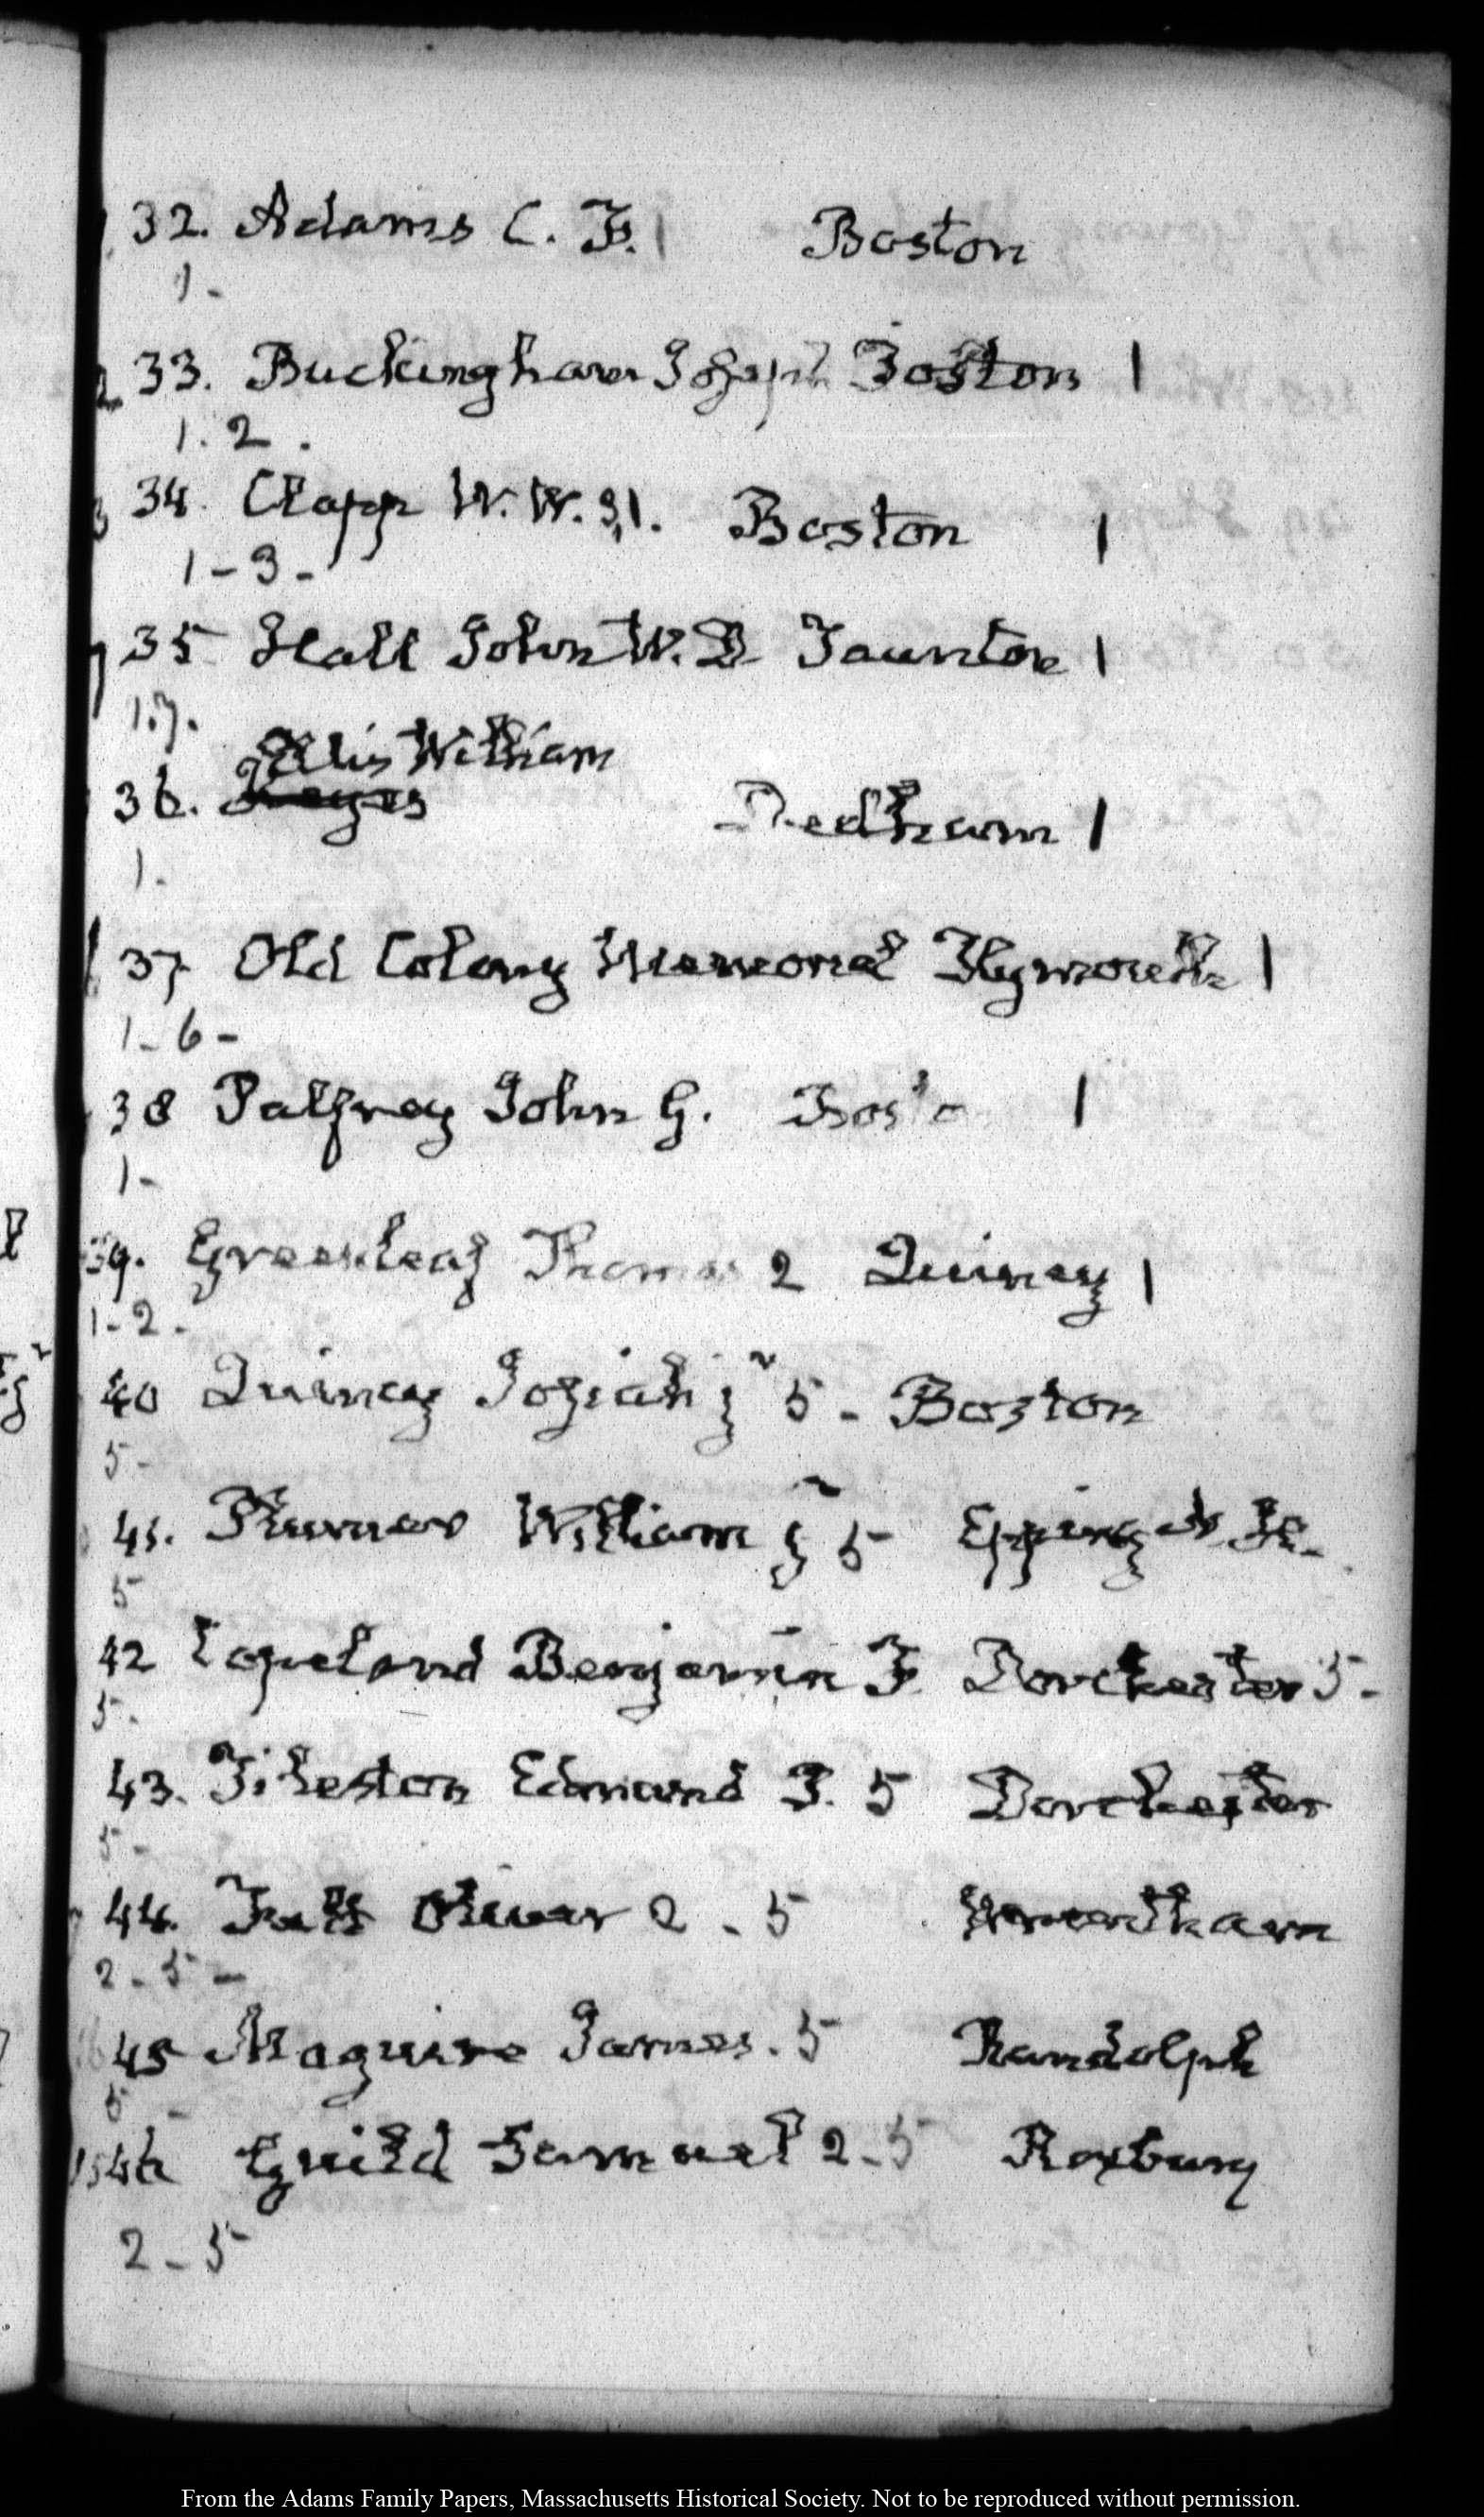 32. Adams C. F. | Boston
1 -
33. Buckingham Joseph Boston |
1. 2.
34. Clapp W. W. 3,1. Boston |
1 - 3 -
35 Hall John W. D Taunton |
1.7.
Ellis William
36. Keyes Dedham |
1.
37 Old Colony Memorial Plymouth |
1 - 6 -
38 Palfrey John G. Boston |
1 -
39. Greenleaf Thomas 2 Quincy |
1 - 2 -
40 Quincy Josiah jr 5 - Boston
5 -
41. Plumer William jr 5 Epping N. H.
5
42 Copeland Benjamin F. Dorchester 5 -
5 -
43. Tileston Edmund P. 5 Dorchester
5 -
44. Oliver 2 - 5 Wrentham
2 - 5 -
45 Maguire James. 5 Randolph
5 -
46 Guild Samuel 2 - 5 Roxbury
2 - 5
From the Adams Family Papers, Massachusetts Historical Society. Not to be reproduced without permission.